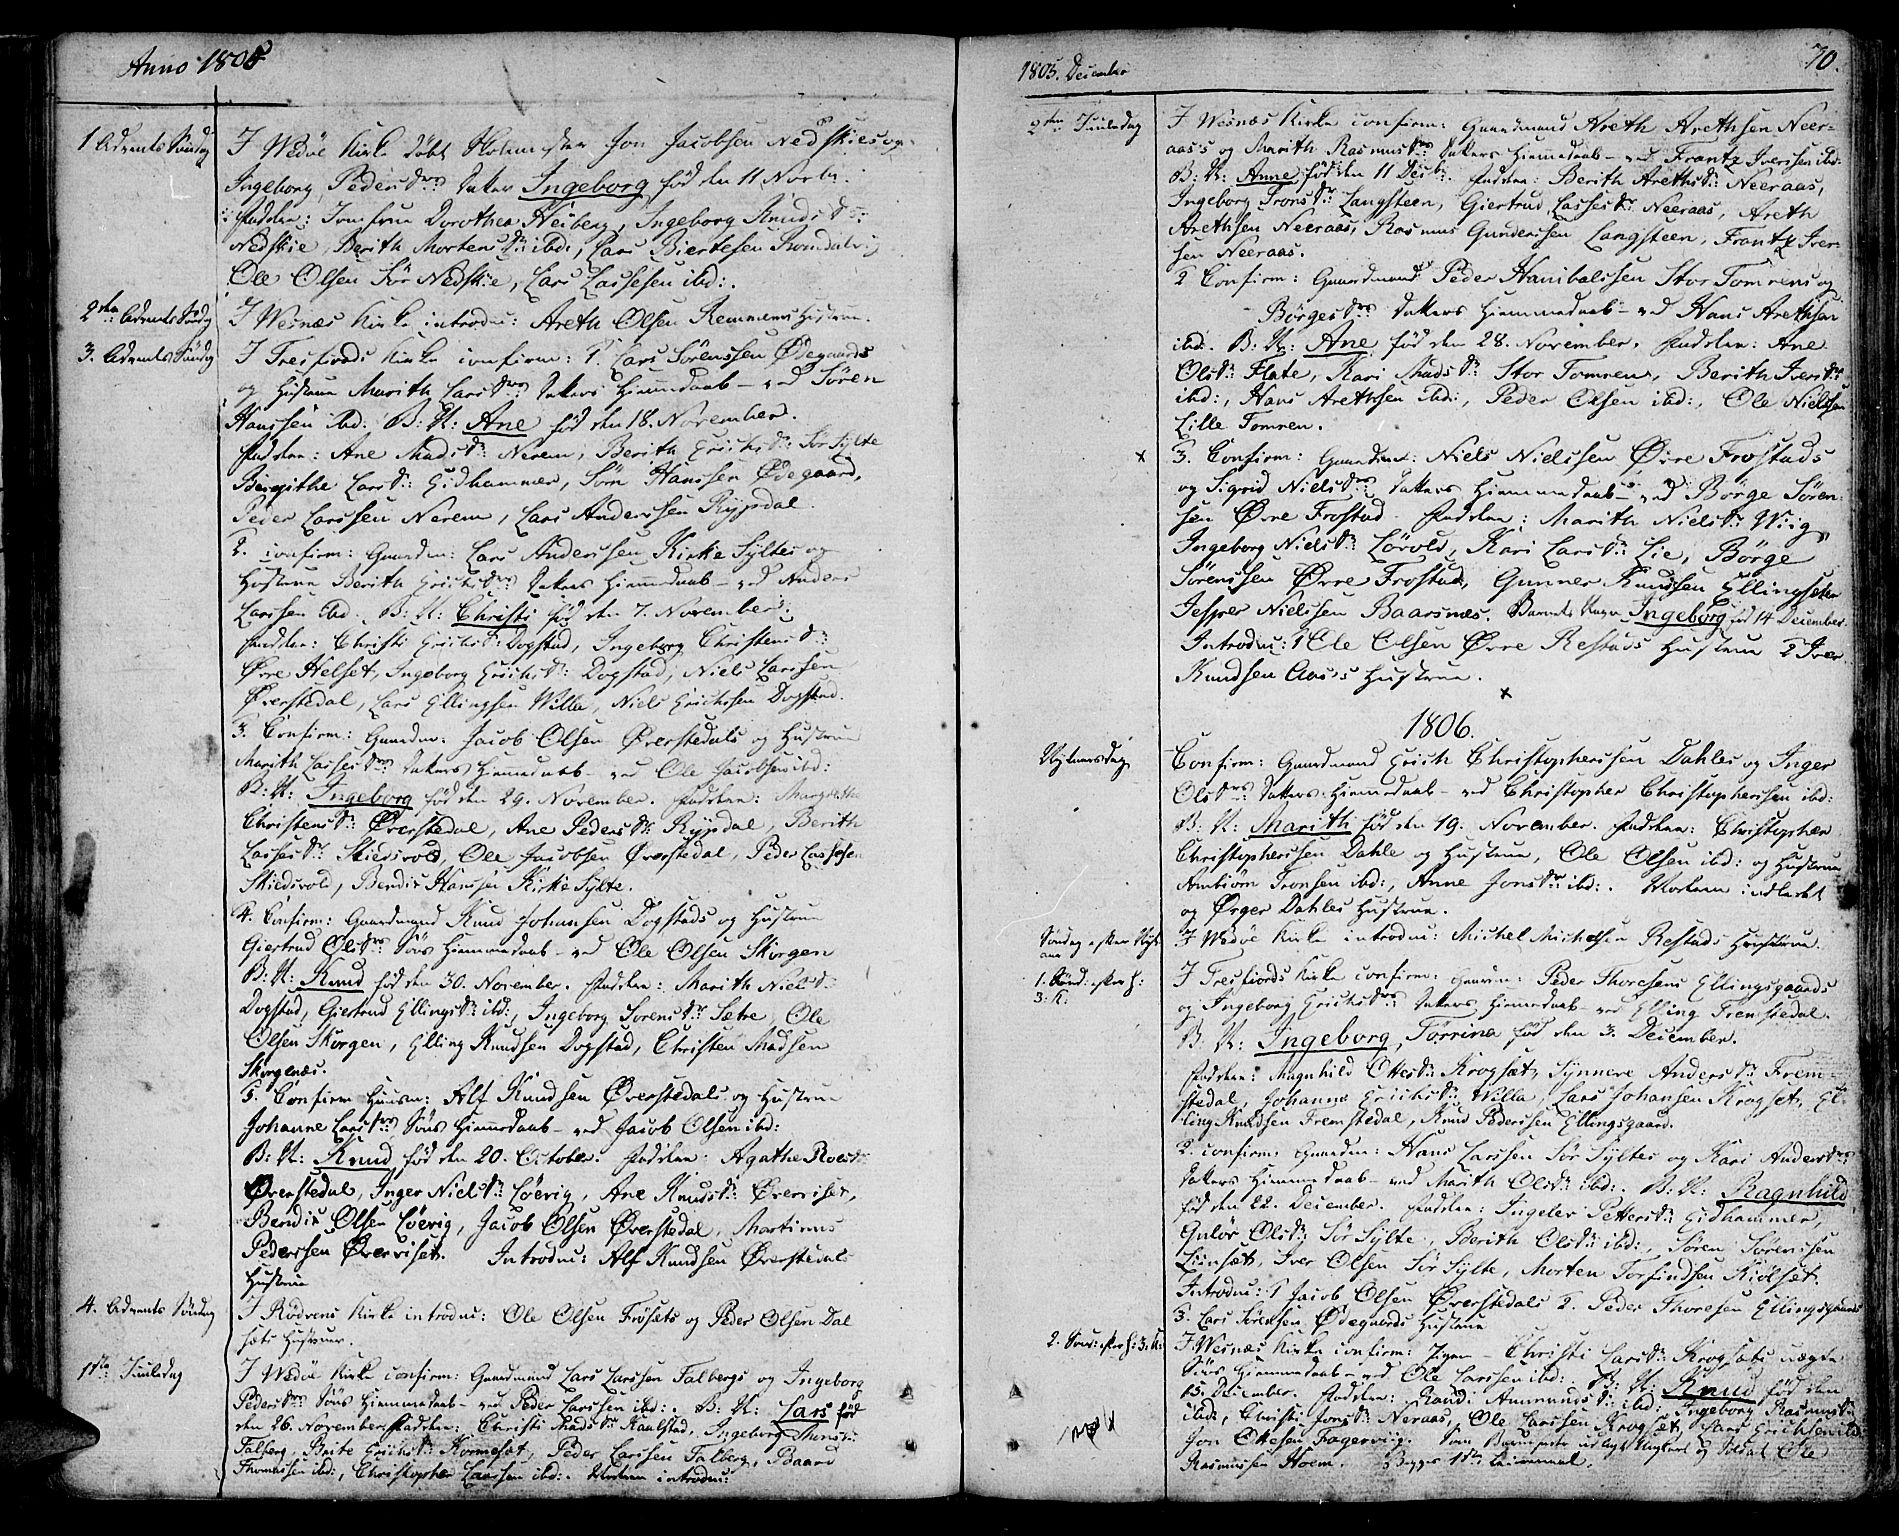 Anno 1805
1 Advents Søndag
I Wedøe Kirke døbt Jon Jacobsen Nedskies og
Ingeborg Peders Drs Datter Ingeborg, født den 11 Novbr.
Faddere: Jomfrue Dorothea Heiberg, Ingeborg Knuds Dr:
Nedskie, Berith Mortens Dr ibd:, Lars Biertesen Romdalsvig
Ole Olsen Sør Nedskie, Lars Lassesen ibd:.
2den Advents Søndag
I Wesnæs Kirke introdu: Areth Olsen Remmens Hustrue.
3. Advents Søndag
I Tresfiords Kirke confirm: 1. Lars Sørenssen Ødegaards
og Hustrue Marith Lars Drs Datters Hiemmedaab – ved Søren
Hanssen ibd. B: N: Ane født den 18. November.
Faddere: Ane Mads Dr: Nerem, Berith Erichs Dr: Sør Sylte
Beregithe Lars Dr: Gidhammer, Sørn Hanssen Ødegaard,
Peder Larssen Nerem, Lars Anderssen Rypdal.
2. confirm: Gaardm: Lars Anderssen Kirke Syltes og
Hustrue Berith Erichs Drs Datters Hiemmedaab – ved Anders
Larssen ibd. B: N: Christi født den 7. November.
Faddere: Christi Erichs Dr: Dogstad, Ingeborg Christens Dr:
Øvre Helset, Ingeborg Erichs Dr: Dogstad, Niels Larssen
Øverstedal, Lars Ellingsen Willa, Niels Erichssen Dogstad.
3. Confirm: Gaardm: Jacob Olsen Øverstedals og Hustrue
Marith Lasses Drs Datters Hiemmedaab – ved Ole Jacobsen ibd:
B: N: Ingeborg født den 29. November. Faddere: Margrethe
Christens Dr: Øverstedal, Ane Peders Dr: Rypdal, Berith
Lasses Dr: Skiedsvold, Ole Jacobsen Øverstedal, Peder Lassesen
Skiedsvold, Bendix Hanssen Kirke Sylte.
4. Confirm: Gaardmand Knud Johansen Dogstads og Hustrue
Giertrud Ols Drs Søns Hiemmedaab – ved Ole Olsen Skorgen
B: N: Knud født den 30. November. Faddere: Marith Niels Dr
Dogstad, Giertrud Ellings Dr ibd:, Ingeborg Sørens Dr Sætre, Ole
Olsen Skorgen, Elling Knudsen Dogstad, Christen Madsen
Skorgenæs.
5. Confirm Huusm: Alf Knudsen Øverstedals og Hustrue
Johanne Lars Drs Søns Hiemmedaab – ved Jacob Olsen ibd:
B: N: Knud født den 20. October. Faddere: Agathe Roes Dr
Øverstedal, Inger Niels Dr: Løevig, Ane Knuds Dr: Øverviset,
Bendix Olsen Løevig, Jacob Olsen Øverstedal, Martinus
Pederssen Øverviset. Introdu: Alf Knudsen Øverstedals
Hustrue
4. Advents Søndag
I Rødvens Kirke introdu: Ole Olsen Frøsets og Peder Olsen Dal
sets Hustruer.
1ste Juuledag
I Wedøe Kirke confirm: Gaardmand Lars Larssen Talbergs og Ingeborg
Peders Drs Søns Hiemmedaab – ved Peder Larssen ibd:. B: N: Lars født
den 26. November Faddere: Christi Mads Dr Kavlstad, Ingeborg Mons Dr
Talberg, Brite Erichs Dr: Kornset, Peder Larssen Talberg, Baard
Thomassen ibd:, Christopher Larssen ibd:. Moderen introdu:
1805. December
70.
2den Juuledag
I Wesnæs Kirke confirm: Gaardmand Areth Arethsen Neer-
aass og Marith Rasmus Drs Datters Hiemmedaab – ved Frantz Iverssen ibd:
B: N: Anne født den 11 Decbr. Faddere: Berith Areths Dr: Neeraas,
Ingeborg Trons Dr: Langsteen, Giertrud Lasses Dr Neeraas, Areth
Arethsen Neeraas, Rasmus Gunderssen Langsteen, Frantz Iver-
sen Neeraas.
2 Confirm: Gaardmand Peder Hanibalssen Stor Tomrens og
– Børges Drs Datters Hiemmedaab – ved Hans Arethsen
ibd. B: N: Ane født den 28. November. Faddere: Ane
Ols Dr: Flate, Kari Mads Dr: Stor Tomren, Berith Ivers Dr:
ibd:, Hans Arethsen ibd:, Peder Olsen ibd:, Ole Nielssen
Lille Tomren.
x
3. Confirm: Gaardm: Niels Nielssen Øvre Frostads
og Sigrid Niels Drs Datters Hiemmedaab – ved Børge Søren
sen Øvre Frostad. Faddere: Marith Niels Dr Wiig,
Ingeborg Niels Dr: Lørvold, Kari Lars Dr: Lie, Børge
Sørenssen Øvre Frostad, Gunner Knudssen Ellingsæter
Jesper Nielssen Baarsnæs. Barnets Navn Ingeborg født 14 December.
Introdu: 1 Ole Olsen Øvre Restads Hustrue 2 Iver
Knudsen Aas's Hustrue.
x
1806.
Nytaarsdag
Confirm: Gaardmand Erich Christopherssen Dahles og Inger
Ols Drs Datters Hiemmedaab – ved Christopher Christopherssen ibd:
B: N: Marith født den 19. November. Faddere: Christopher
Christopherssen Dahle og Hustrue, Ole Olsen ibd: og Hustrue
Ambiørn Tronsen ibd:, Anne Jons Dr ibd:. Moderen indledet
og Ørger Dahles Hustrue.
Søndag efter Nyt
aar
I Wedøe Kirke introdu: Michel Michelsen Restads Hustrue.
1. Sønd: efter H:
3: K:
I Tresfiords Kirke confirm: Gaardm: Peder Thoresens Ellingsgaards
og Ingeborg Erichs Drs Datters Hiemmedaab – ved Elling Fremstedal.
B: N: Ingeborg Torrina født den 3. December.
Faddere: Magnhild Ottes Dr: Krogset, Synnere Anders Dr: Frem-
stedal, Johanne Erichs Dr: Willa, Lars Johansen Krogset, El-
ling Knudsen Fremstedal, Knud Pederssen Ellingsgaard.
2. confirm: Gaardm: Hans Larssen Sør Syltes og Kari Anders Drs
Datters Hiemmedaab – ved Marith Ols Dr: ibd:. B: N: Ragnhild
født den 22. December. Faddere: Ingeler Petters Dr: Gidhammer,
Gulør Ols Dr: Sør Sylte, Berith Ols Dr: ibd:, Søren Sørenssen
Liensæt, Iver Olsen Sør Sylte, Morten Torfindsen Kiølset.
Introdu: 1 Jacob Olsen Øverstedals 2. Peder Thoresen Ellingsgaards
3. Lars Sørensen Ødegaards Hustrue
2. Sønd: efter H: 3: K:
I Wesnæs Kirke confirm: Pigen – Christi Lars Dr: Krogsæts uægte
Søns Hiemmedaab – ved Ole Larssen ibd:. B: N: Knud født den
15. December. Faddere: Rand: Amunds Dr: ibd: Ingeborg Rasmus Dr:
ibd:, Christi Jons Dr: Neraas, Ole Larssen Krogsæt, Lars Erichsen ibd:
Jon Ottesen Fagervig. Som Barnefader udlagt Ungkarl og Soldat Ole
Rasmussen Hoem. Begges 1ste Leiermaal.